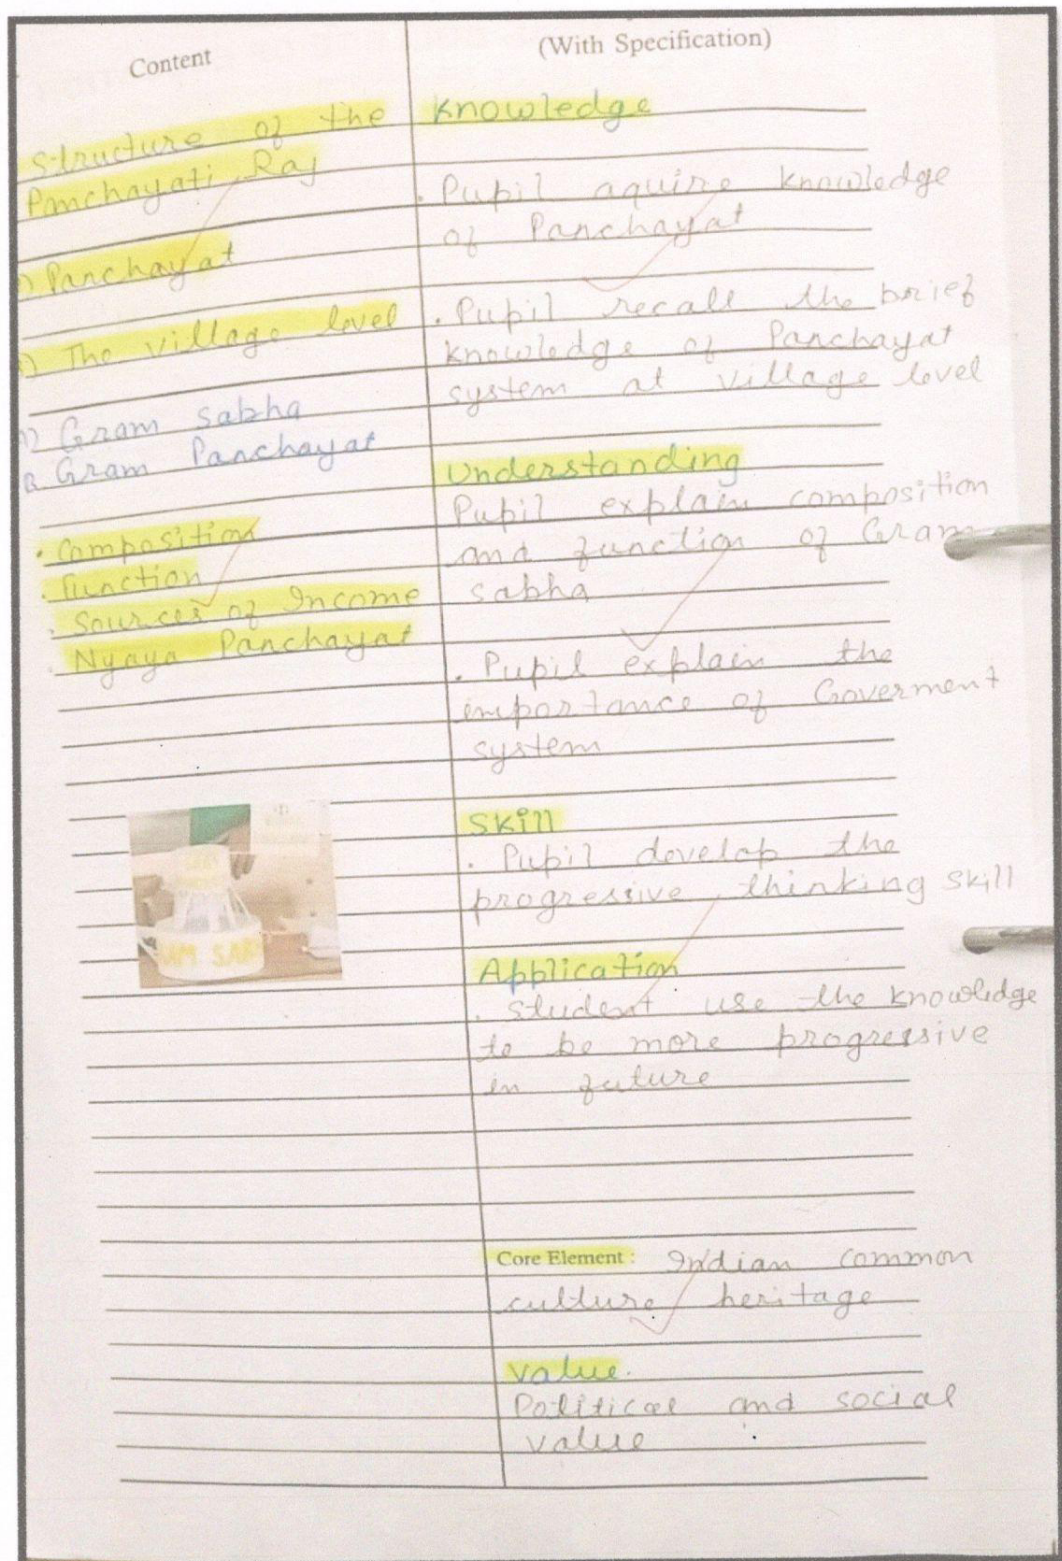 Content
Structure of the
Panchayati Raj
1) Panchayat
1) The village level
1) Gram sabha
Gram Panchayat
. Composition
. function
. Sources of Income
. Nyaya Panchayat
SAB
(With Specification)
Knowledge
. Pupil aquire knowledge
of Panchayat
. Pupil recall the brief
knowledge of Panchayat
system at village level
Understanding
Pupil explain composition
and function of Gram
sabha
. Pupil explain the
importance of Goverment
system
Skill
. Pupil develop the
progressive thinking skill
Application
. Student use the knowledge
to be more progressive
in future
Core Element : Indian common
culture heritage
value.
Political and social
value